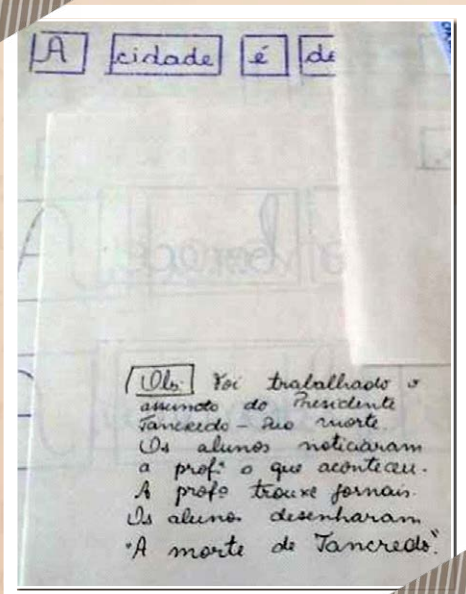 A cidade é de
Obs: Foi trabalhado o
assunto do Presidente
Tancredo - sua morte.
Os alunos noticiaram
a profª o que aconteceu.
A profª trouxe jornais.
Os alunos desenharam
"A morte de Tancredo".